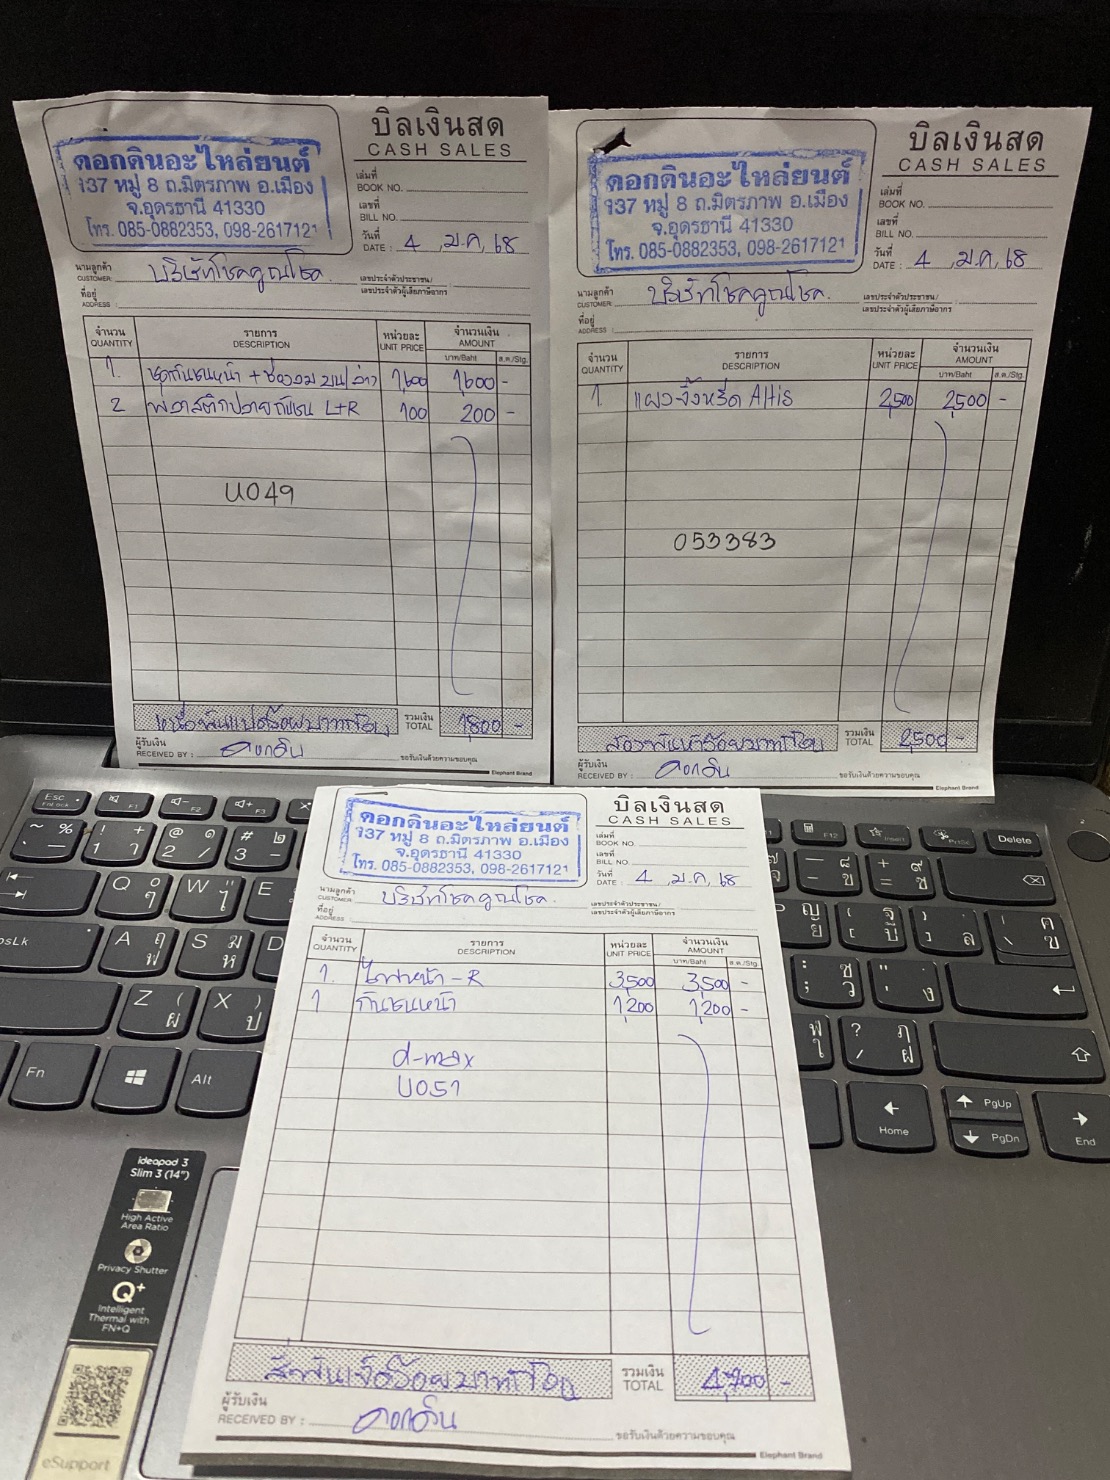 บิลเงินสด
CASH SALES
ดอกดินอะไหล่ยนต์
137 หมู่ 8 ถ.มิตรภาพ อ.เมือง
จ.อุดรธานี 41330
โทร. 085-0882353, 098-2617121
เล่มที่
BOOK NO.
เลขที่
BILL NO.
วันที่
DATE : 4 ,ม.ค, 68
นามลูกค้า
CUSTOMER บริษัทโชคคูณโชค.
เลขประจำตัวประชาชน/
เลขประจำตัวผู้เสียภาษีอากร
ที่อยู่
ADDRESS
จำนวน รายการ หน่วยละ จำนวนเงิน
QUANTITY DESCRIPTION UNIT PRICE AMOUNT
บาท/Baht ส.ต./Stg.
1. ชุดกันชนหน้า + ช่องลม บน/ล่าง 1,600 1,600 -
2 พลาสติกปลายกันชน L+R 100 200 -
U049
รวมเงิน
TOTAL 1,800 -
ผู้รับเงิน
RECEIVED BY : ดอกดิน
ขอรับเงินด้วยความขอบคุณ
Elephant Brand
บิลเงินสด
CASH SALES
ดอกดินอะไหล่ยนต์
137 หมู่ 8 ถ.มิตรภาพ อ.เมือง
จ.อุดรธานี 41330
โทร. 085-0882353, 098-2617121
เล่มที่
BOOK NO.
เลขที่
BILL NO.
วันที่
DATE : 4 ,ม.ค, 68
นามลูกค้า
CUSTOMER บริษัทโชคคูณโชค.
เลขประจำตัวประชาชน/
เลขประจำตัวผู้เสียภาษีอากร
ที่อยู่
ADDRESS
จำนวน รายการ หน่วยละ จำนวนเงิน
QUANTITY DESCRIPTION UNIT PRICE AMOUNT
บาท/Baht ส.ต./Stg.
1. แผงจิ้งหรีด Altis 2,500 2,500 -
053383
สองพันห้าร้อยบาทถ้วน รวมเงิน
TOTAL 2,500 -
ผู้รับเงิน
RECEIVED BY : ดอกดิน
ขอรับเงินด้วยความขอบคุณ
Elephant Brand
บิลเงินสด
CASH SALES
ดอกดินอะไหล่ยนต์
137 หมู่ 8 ถ.มิตรภาพ อ.เมือง
จ.อุดรธานี 41330
โทร. 085-0882353, 098-2617121
เล่มที่
BOOK NO.
เลขที่
BILL NO.
วันที่
DATE : 4 ,ม.ค, 68
นามลูกค้า
CUSTOMER บริษัทโชคคูณโชค.
เลขประจำตัวประชาชน/
เลขประจำตัวผู้เสียภาษีอากร
ที่อยู่
ADDRESS
จำนวน รายการ หน่วยละ จำนวนเงิน
QUANTITY DESCRIPTION UNIT PRICE AMOUNT
บาท/Baht ส.ต./Stg.
1. ไฟหน้า - R 3,500 3,500 -
1 กันชนหน้า 1,200 1,200 -
d-max
U051
สี่พันเจ็ดร้อยบาทถ้วน รวมเงิน
TOTAL 4,700 -
ผู้รับเงิน
RECEIVED BY : ดอกดิน
ขอรับเงินด้วยความขอบคุณ
Elephant Brand
Esc
FnLock
F1
F2
F3
F12
Insert
PrtSc
Delete
Q W E
psLk A S D
Z X
Fn Alt
Home
PgUp
PgDn
End
ideapad 3
Slim 3 (14")
High Active
Area Ratio
Privacy Shutter
Q+
Intelligent
Thermal with
FN+Q
eSupport